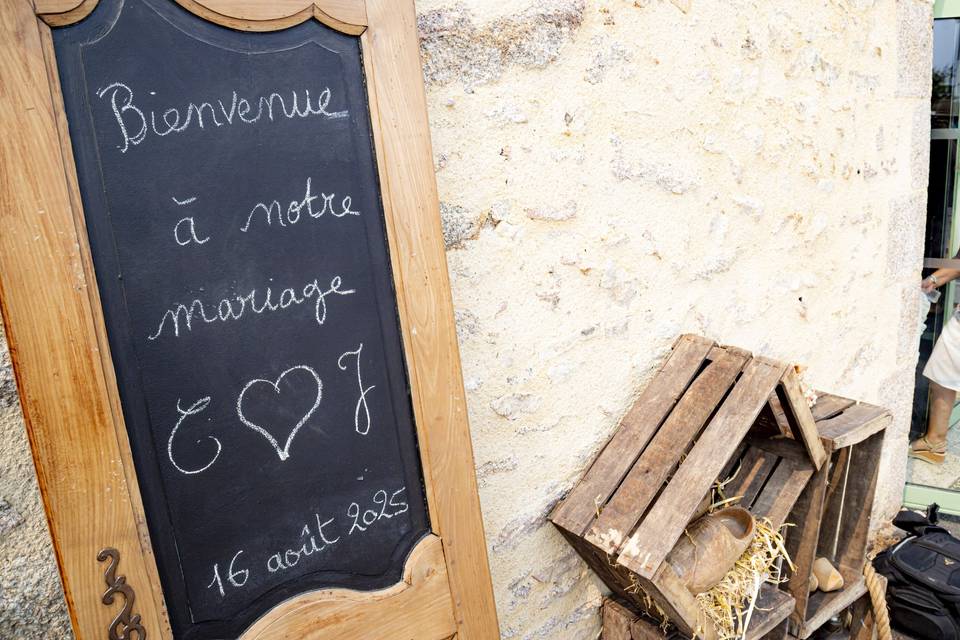 Bienvenue
à notre
mariage
C ♡ J
16 août 2025